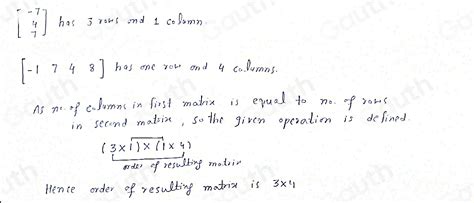 [-7
4
7] has 3 rows and 1 column.
[-1 7 4 8] has one row and 4 columns.
As no. of columns in first matrix is equal to no. of rows
in second matrix, so the given operation is defined.
(3×1)×(1×4)
order of resulting matrix
Hence order of resulting matrix is 3×4